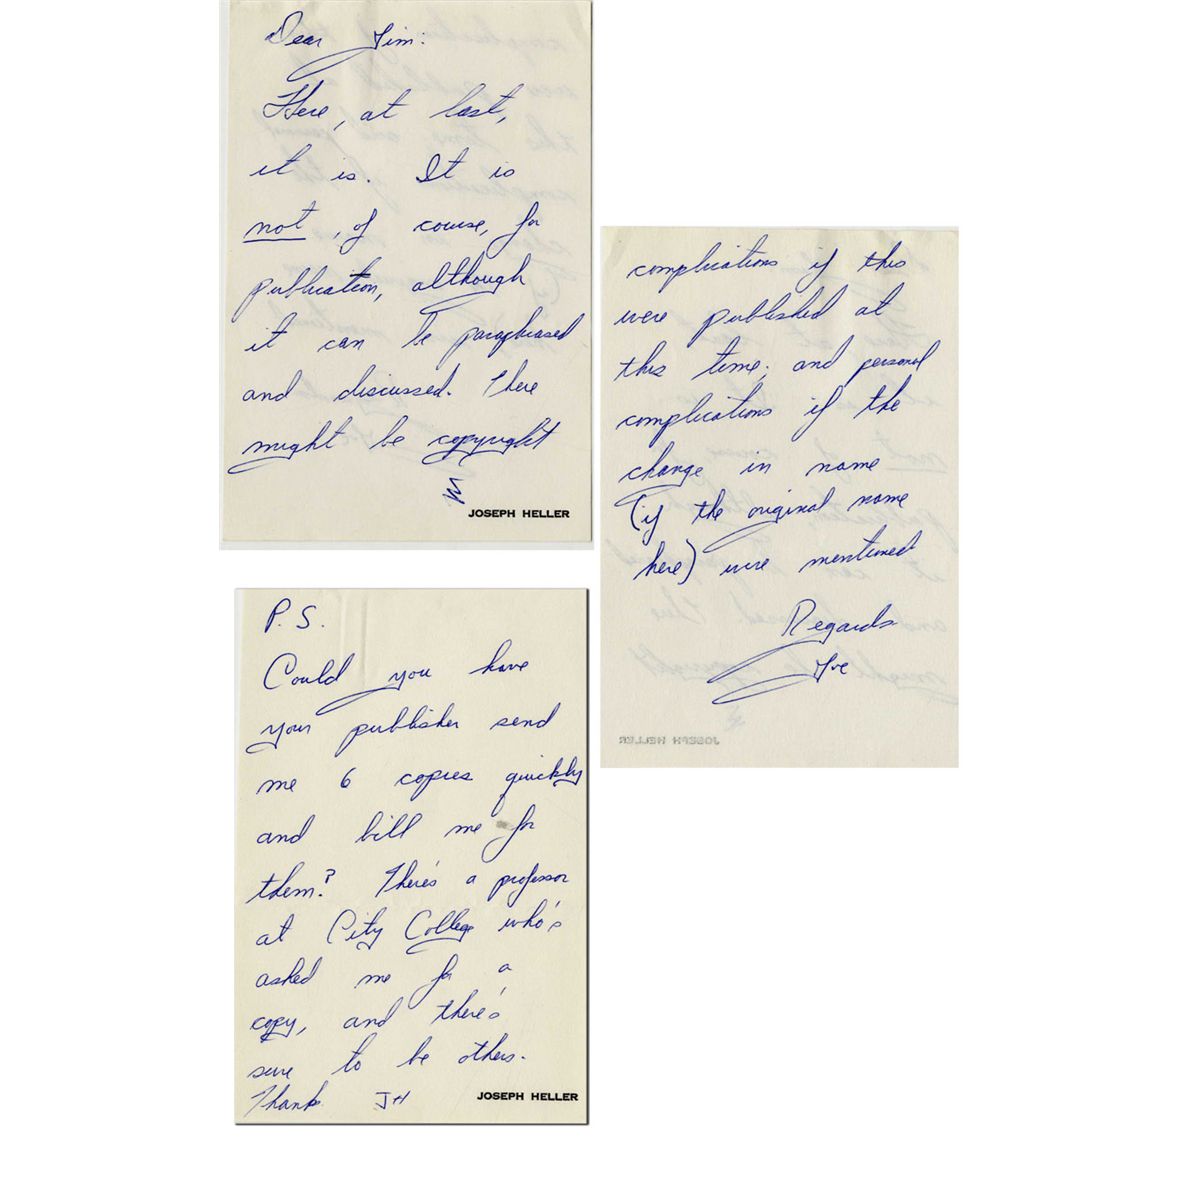 Dear Jim:
Here, at last,
it is. It is
not, of course, for
publication, although
it can be paraphrased
and discussed. There
might be copyright
JOSEPH HELLER
complications if this
were published at
this time; and personal
complications if the
change in name
(if the original name
here) were mentioned
Regards
Joe
JOSEPH HELLER
P.S.
Could you have
your publisher send
me 6 copies quickly
and bill me for
them? There's a professor
at City College who's
asked me for a
copy, and there's
sure to be others.
Thanks JH
JOSEPH HELLER